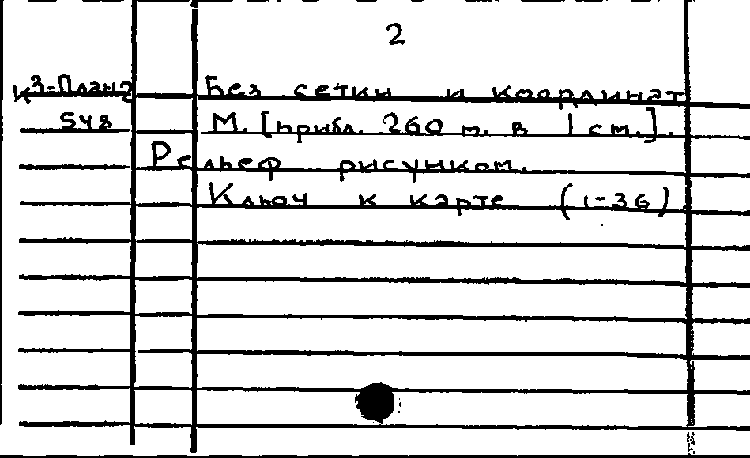 2
К3-План2 Без сетки и координат
548 М. [прибл. 260 м. в 1 см.].
Рельеф рисунком.
Ключ к карте (1-36)